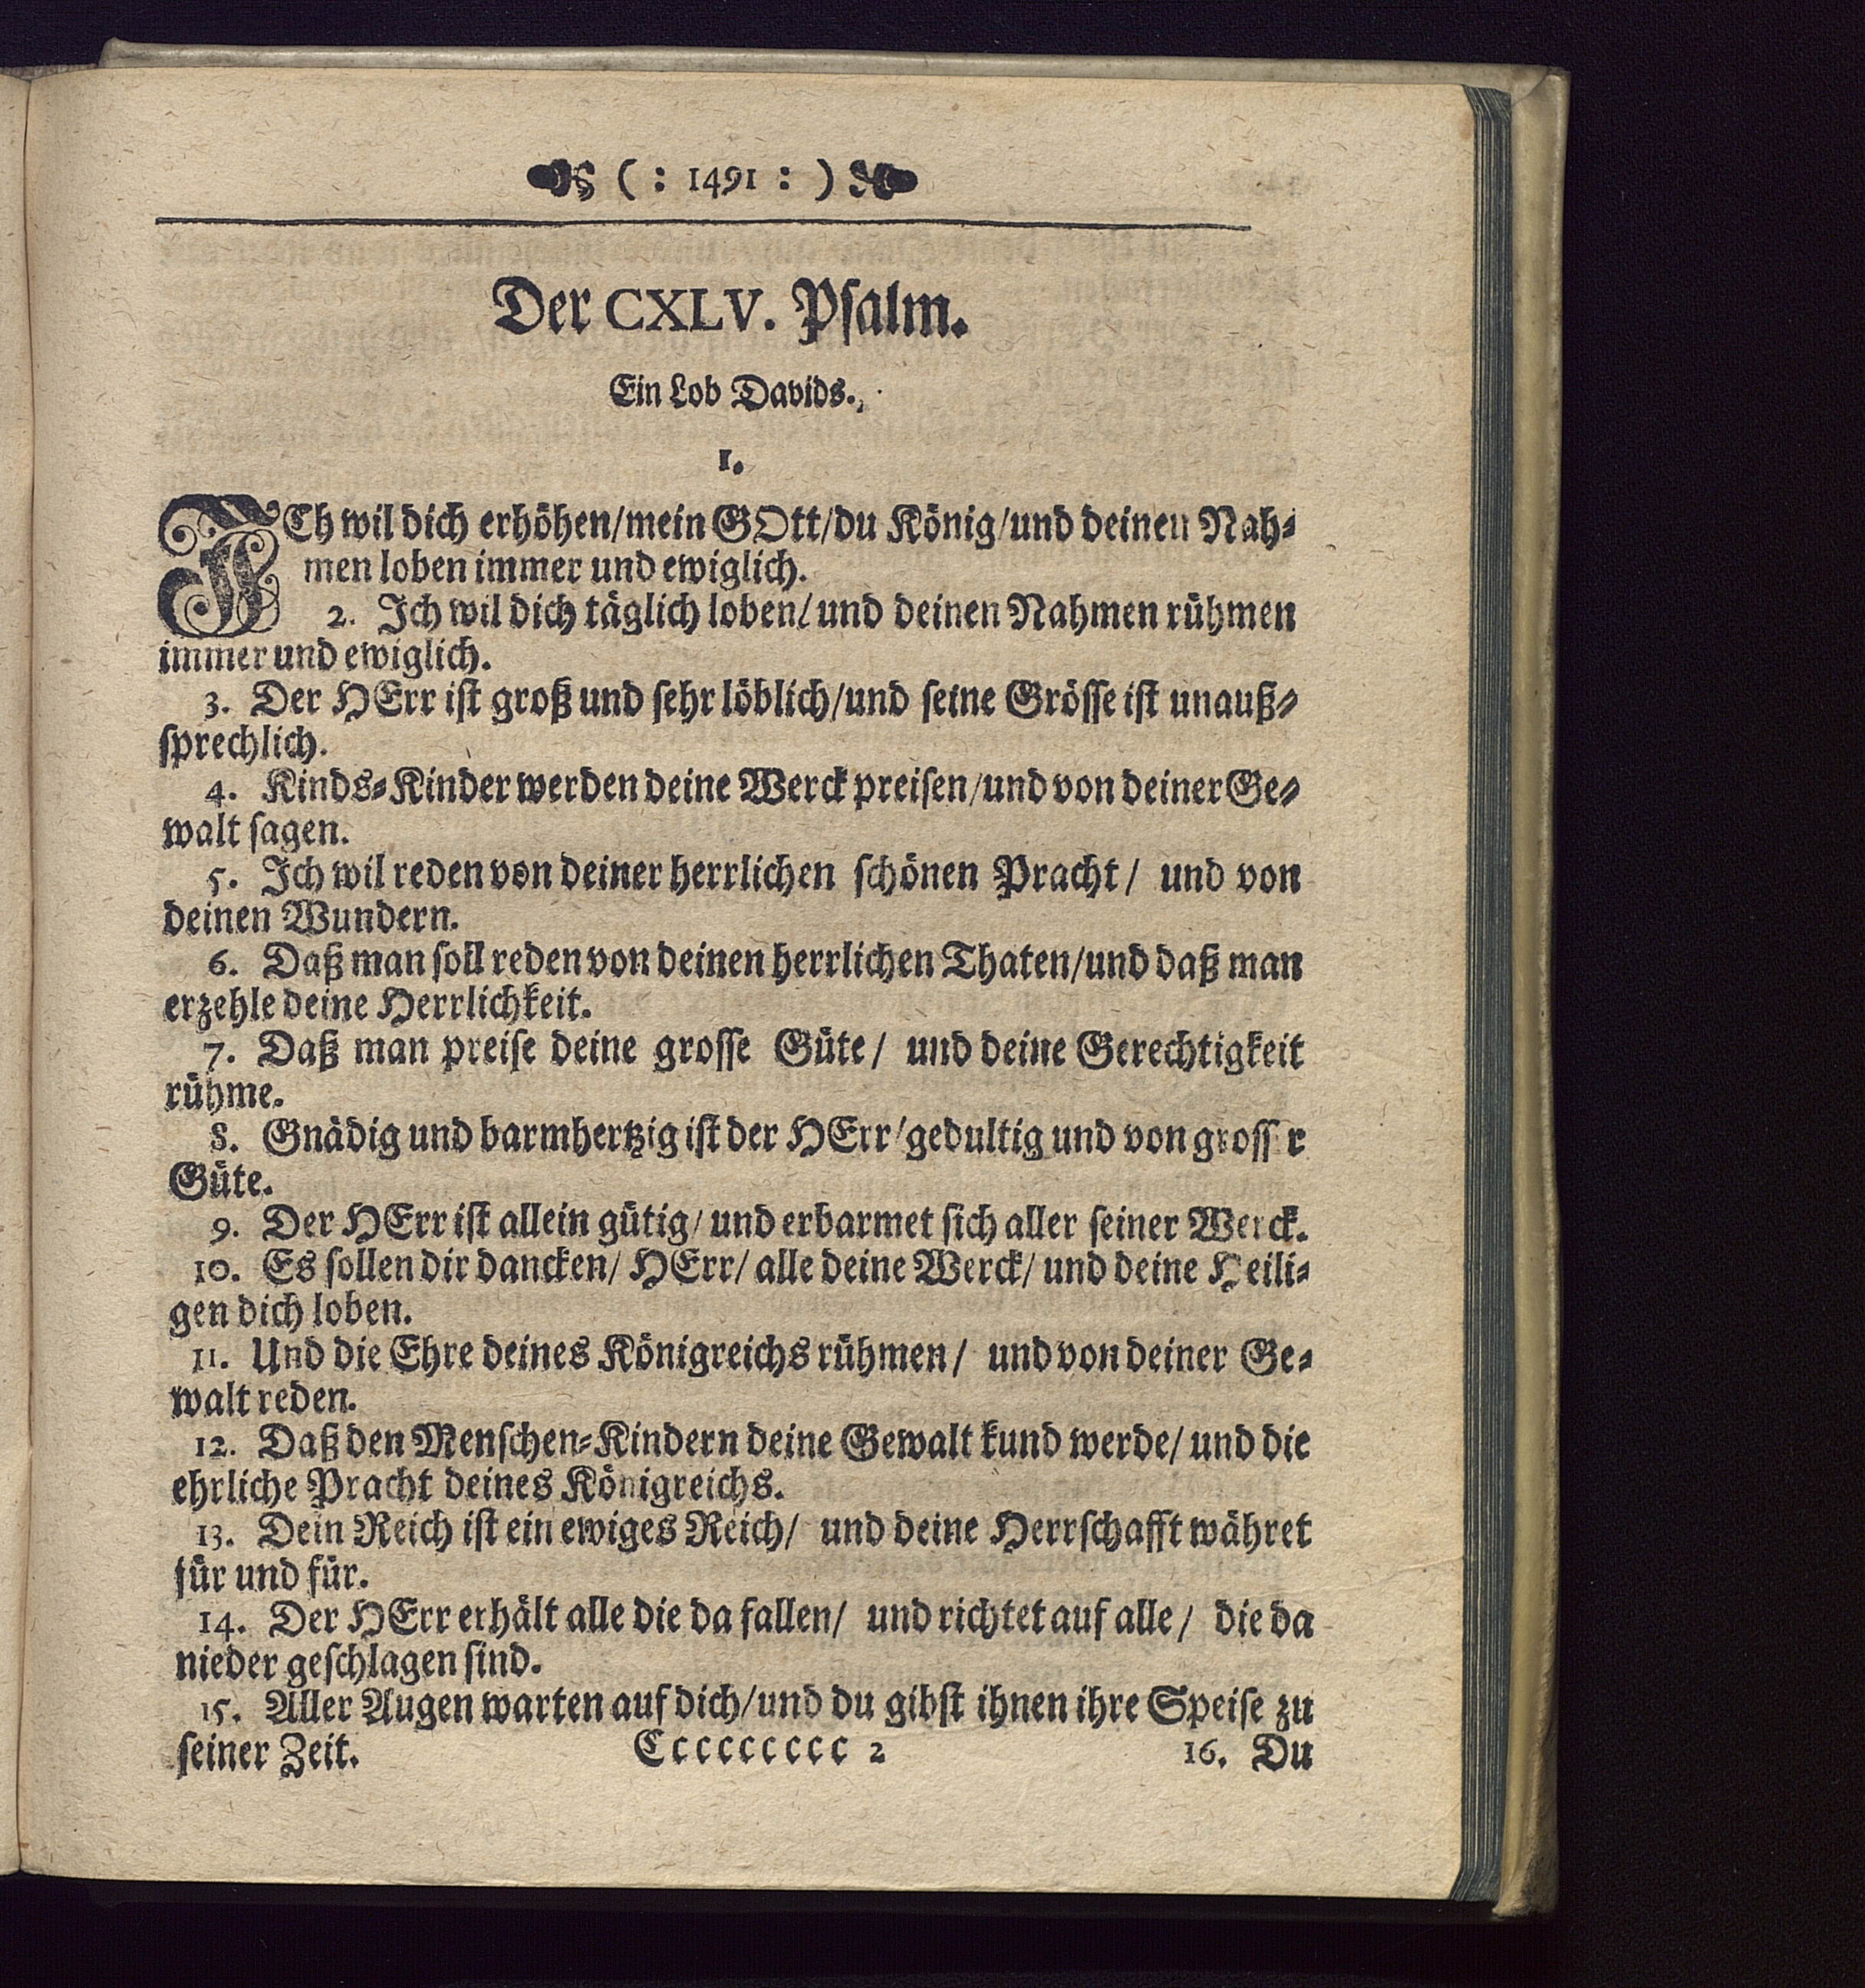 (: 1491 :)
Der CXLV. Psalm.
Ein Lob Davids.
1.
ICh wil dich erhöhen/mein GOtt/du König/und deinen Nah-
men loben immer und ewiglich.
2. Ich wil dich täglich loben/und deinen Nahmen rühmen
immer und ewiglich.
3. Der HErr ist groß und sehr löblich/und seine Grösse ist unauß-
sprechlich.
4. Kinds-Kinder werden deine Werck preisen/und von deiner Ge-
walt sagen.
5. Ich wil reden von deiner herrlichen schönen Pracht/ und von
deinen Wundern.
6. Daß man soll reden von deinen herrlichen Thaten/und daß man
erzehle deine Herrlichkeit.
7. Daß man preise deine grosse Güte/ und deine Gerechtigkeit
rühme.
8. Gnädig und barmhertzig ist der HErr/gedultig und von grosser
Güte.
9. Der HErr ist allein gütig/und erbarmet sich aller seiner Werck.
10. Es sollen dir dancken/ HErr/ alle deine Werck/ und deine Heili-
gen dich loben.
11. Und die Ehre deines Königreichs rühmen/ und von deiner Ge-
walt reden.
12. Daß den Menschen-Kindern deine Gewalt kund werde/ und die
ehrliche Pracht deines Königreichs.
13. Dein Reich ist ein ewiges Reich/ und deine Herrschafft währet
für und für.
14. Der HErr erhält alle die da fallen/ und richtet auf alle/ die da
nieder geschlagen sind.
15. Aller Augen warten auf dich/und du gibst ihnen ihre Speise zu
seiner Zeit. Ccccccccc 2 16. Du